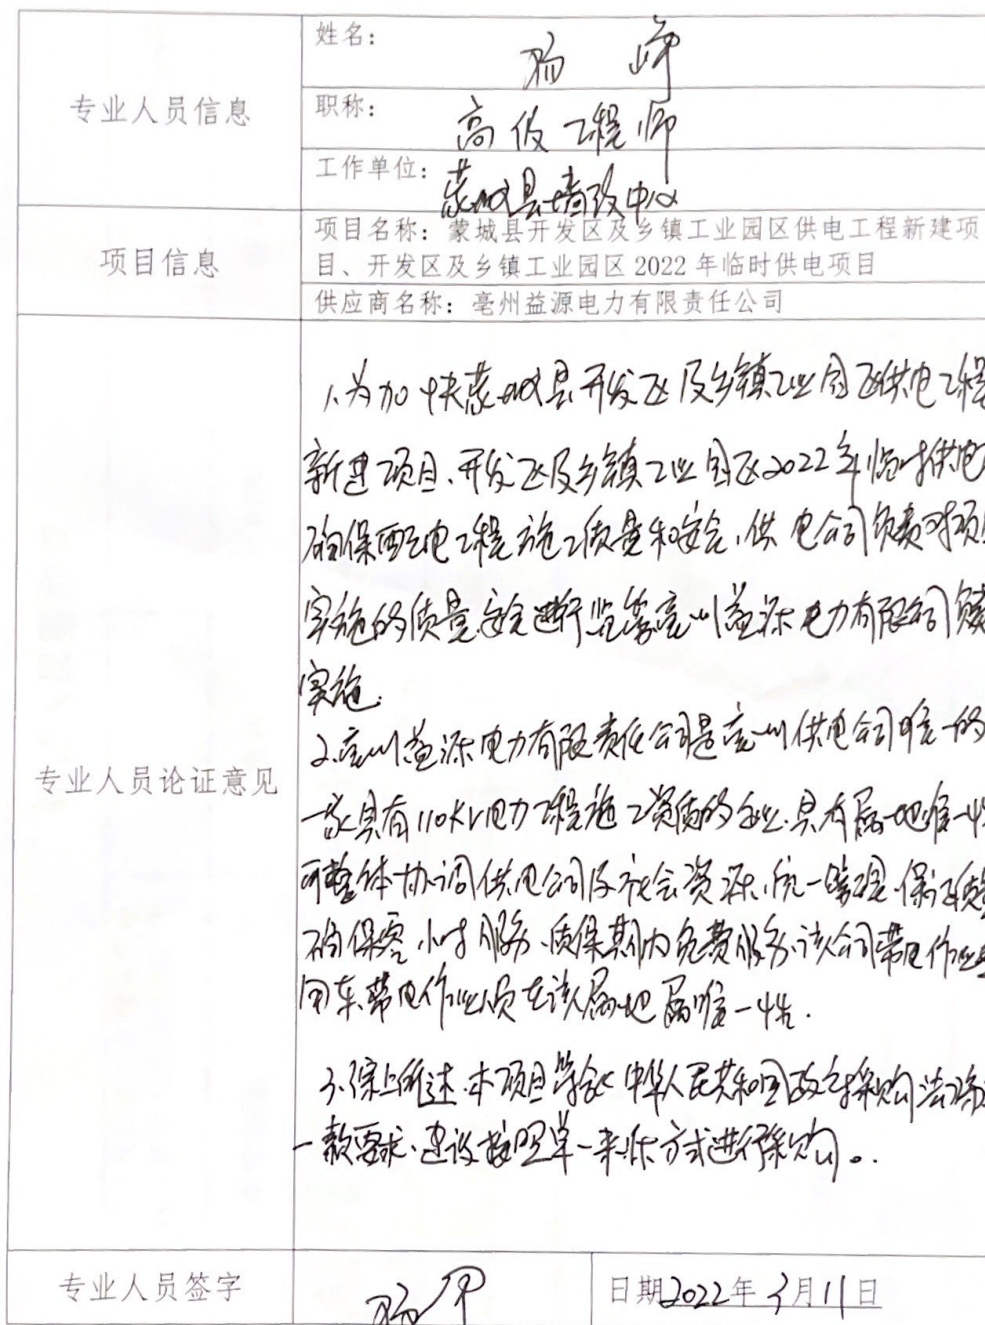 专业人员信息
姓名：杨峰
职称：高级工程师
工作单位：蒙城县墙改中心
项目信息
项目名称：蒙城县开发区及乡镇工业园区供电工程新建项
目、开发区及乡镇工业园区 2022 年临时供电项目
供应商名称：亳州益源电力有限责任公司
专业人员论证意见
1、为加快蒙城县开发区及乡镇工业园区供电工程
新建项目、开发区及乡镇工业园区2022年临时供电
确保配电工程施工质量和安全，供电公司负责对项
实施的质量、安全进行监管，亳州益源电力有限公司负责
实施。
2、亳州益源电力有限责任公司是亳州供电公司唯一的
一家具有110kV电力工程施工资质的企业，具有属地唯一性
可整体协调供电公司及社会资源，统一管理，保证质量
确保零小时服务、质保期内免费服务，该公司带电作业
用车、带电作业人员在该属地属唯一性.
3、综上所述，本项目符合《中华人民共和国政府采购法
一款要求，建议按照单一来源方式进行采购。
专业人员签字
杨
日期2022年3月11日